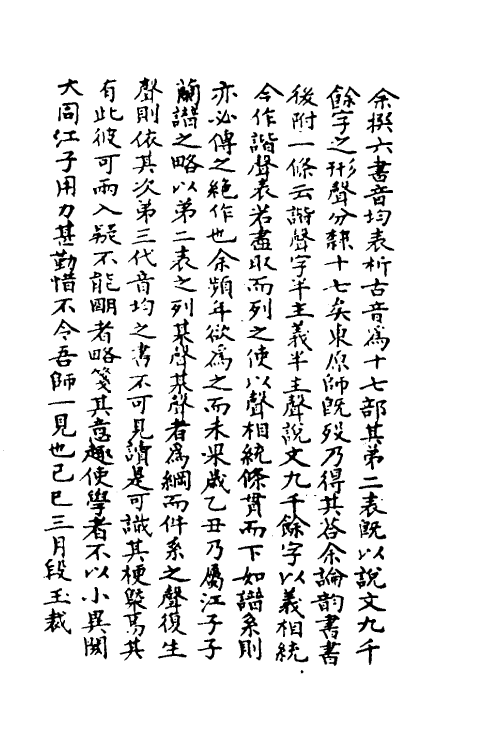 余撰六書音均表析古音爲十七部其第二表既以說文九千
餘字之形聲分隸十七矣東原師既歿乃得其荅余論韵書書
後附一條云諧聲字半主義半主聲說文九千餘字以義相統
今作諧聲表若盡取而列之使以聲相統條貫而下如譜系則
亦必傳之絕作也余頻年欲爲之而未果歲乙丑乃屬江子子
蘭譜之略以第二表之列某聲某聲者爲綱而件系之聲復生
聲則依其次第三代音均之書不可見讀是可識其梗槩焉其
有此彼可兩入疑不能明者略箋其意趣使學者不以小異閡
大同江子用力甚勤惜不令吾師一見也己巳三月段玉裁